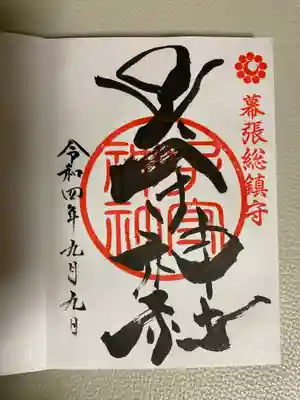 幕張総鎮守
子守神社
子守神社
令和四年九月九日